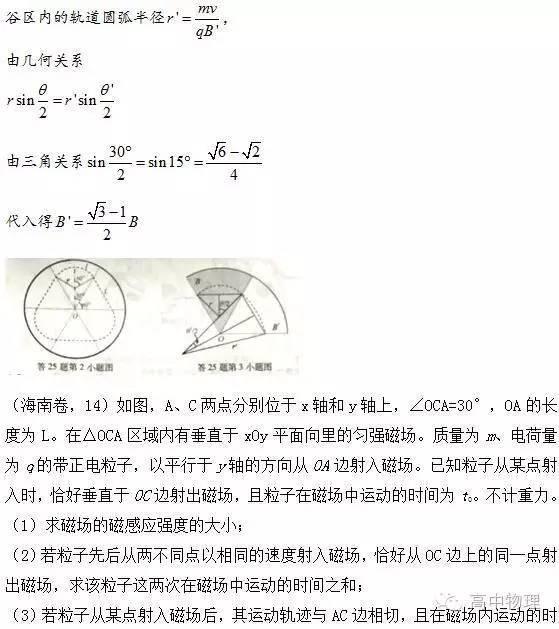 谷区内的轨道圆弧半径r'=mv/qB',
由几何关系
r sin θ/2 = r' sin θ'/2
由三角关系 sin 30°/2 = sin15° = (√6-√2)/4
代入得B' = (√3-1)/2 B
答25题第2小题图 答25题第3小题图
(海南卷,14)如图,A、C两点分别位于x轴和y轴上,∠OCA=30°,OA的长
度为L。在△OCA区域内有垂直于xOy平面向里的匀强磁场。质量为m、电荷量
为q的带正电粒子,以平行于y轴的方向从OA边射入磁场。已知粒子从某点射
入时,恰好垂直于OC边射出磁场,且粒子在磁场中运动的时间为t₀。不计重力。
(1)求磁场的磁感应强度的大小;
(2)若粒子先后从两不同点以相同的速度射入磁场,恰好从OC边上的同一点射
出磁场,求该粒子这两次在磁场中运动的时间之和;
(3)若粒子从某点射入磁场后,其运动轨迹与AC边相切,且在磁场内运动的时
高中物理